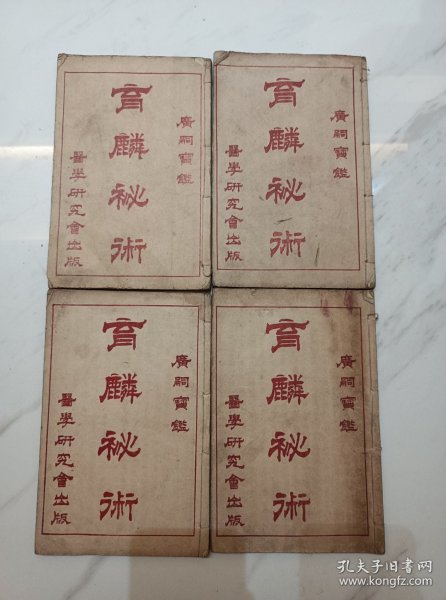 廣嗣寶鑑
育麟祕術
醫學研究會出版
廣嗣寶鑑
育麟祕術
醫學研究會出版
廣嗣寶鑑
育麟祕術
醫學研究會出版
廣嗣寶鑑
育麟祕術
醫學研究會出版
孔夫子旧书网
www.kongfz.com